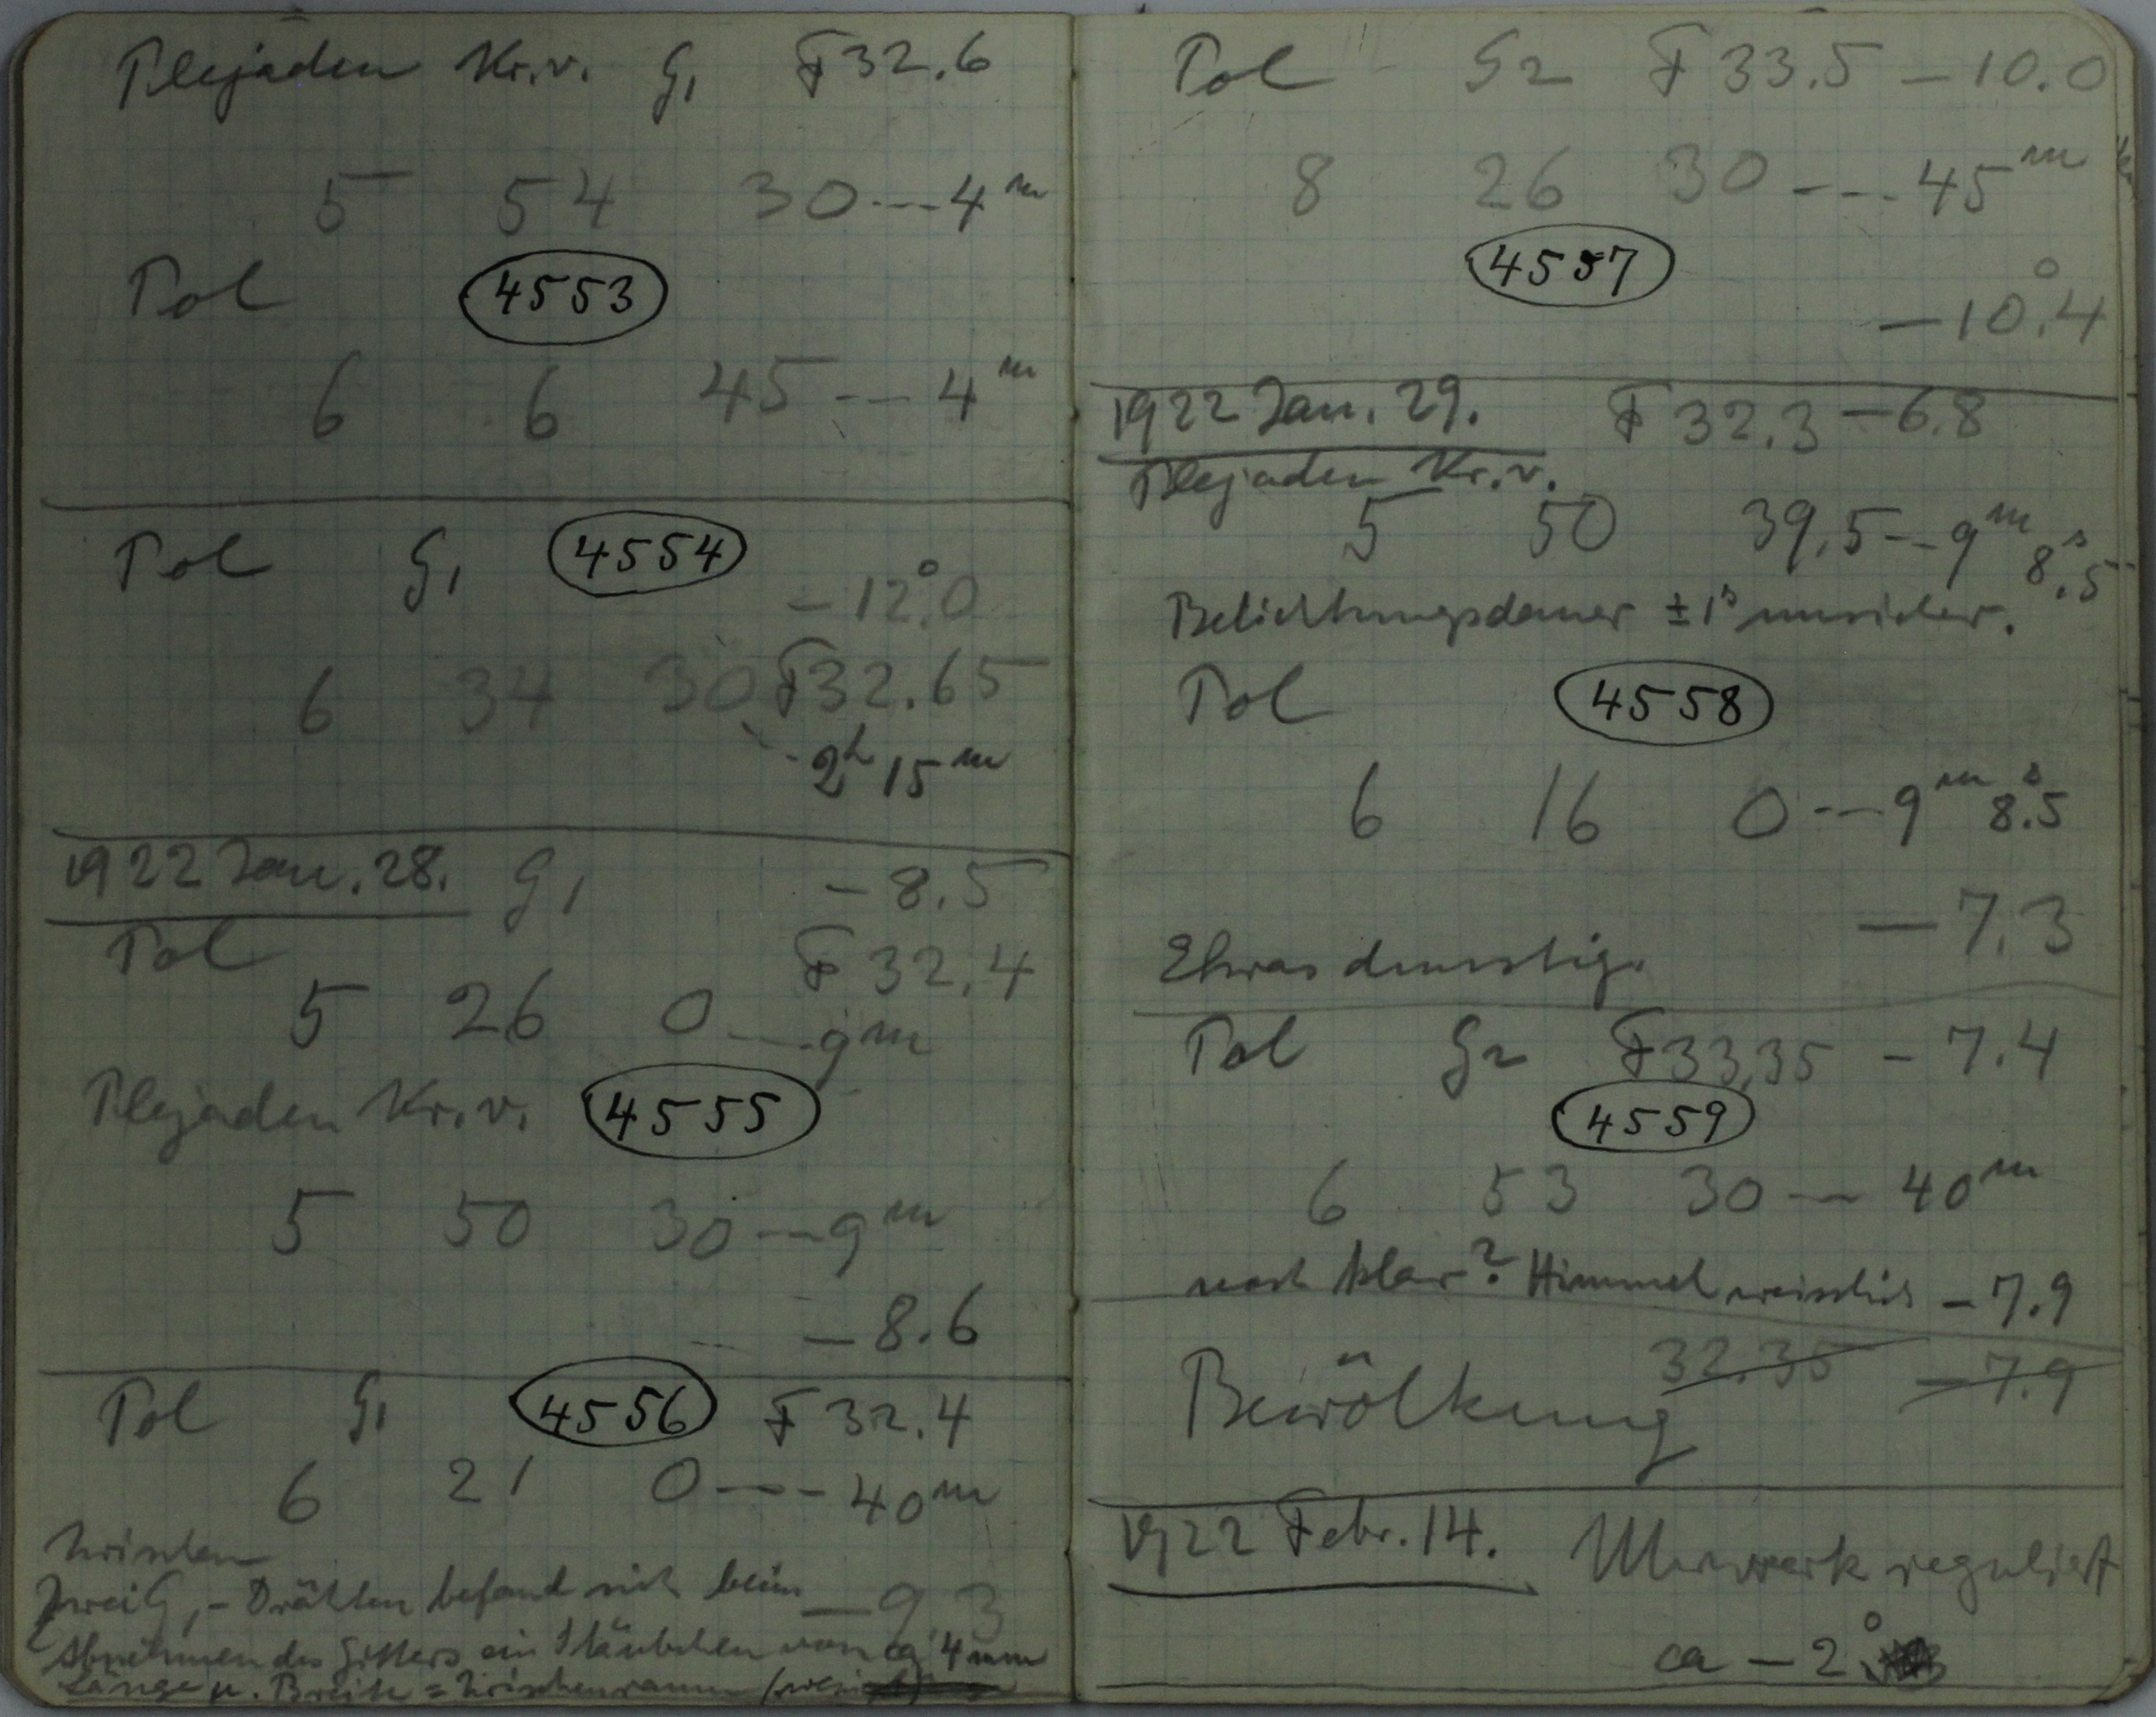 Plejaden Kr.v. G1 F 32.6
5 54 30---4m
Pol 4553
6 6 45---4m
Pol G1 4554
-12°.0
6 34 30 F 32.65
2h 15m
1922 Jan. 28. G1 -8.5
Pol F 32.4
5 26 0---9m
Plejaden Kr.v. 4555
5 50 30---9m
-8.6
Pol G1 4556 F 32.4
6 21 0---40m
Zwischen
zwei G1-Drähten befand sich beim -9.3
Abnehmen des Gitters ein Stäubchen von ca 4mm
Länge u. Breite = Zwischenraum
Pol G2 F 33.5 -10.0
8 26 30---45m
4557
-10°.4
1922 Jan. 29. F 32.3 -6.8
Plejaden Kr.v.
5 50 39.5--9m 8s.5
Belichtungsdauer ±1s unsicher.
Pol 4558
6 16 0---9m 8s.5
-7.3
Etwas dunstig.
Pol G2 F 33.35 -7.4
4559
6 53 30--40m
noch klar? Himmel weisslich -7.9
32.35 -7.9
Bewölkung
1922 Febr. 14. Uhrwerk reguliert
ca -2°